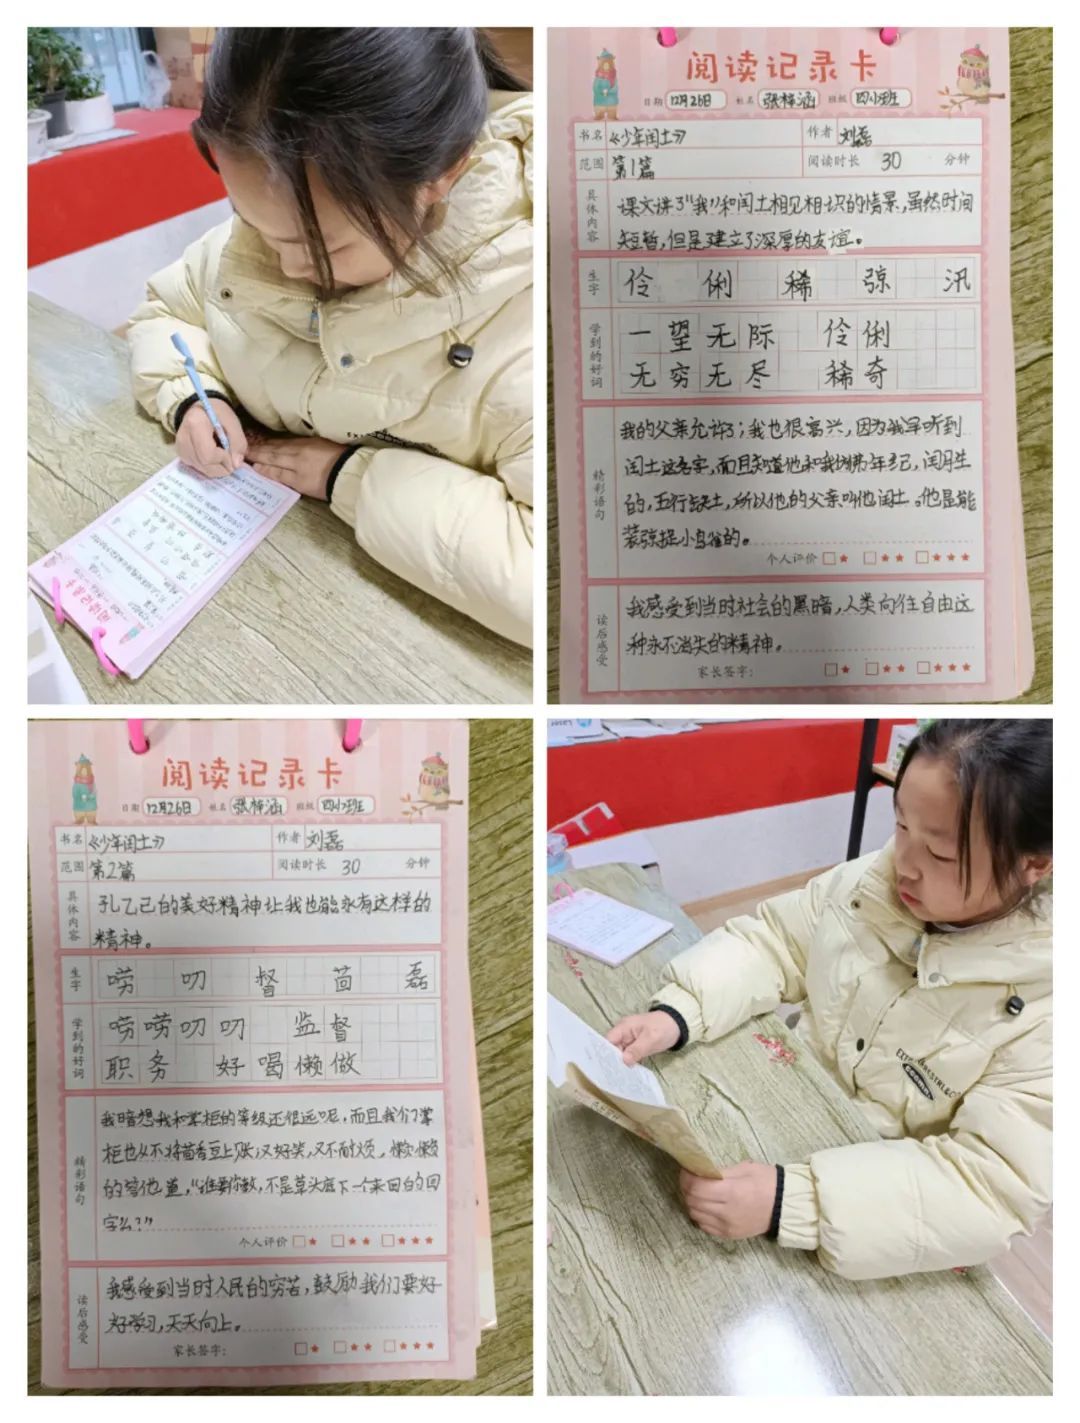 阅读记录卡
日期 12月26日 姓名 张梓涵 班级 四小班
书名 《少年闰土》 作者 刘磊
范围 第1篇 阅读时长 30 分钟
具体内容
课文讲了“我”和闰土相见相识的情景,虽然时间
短暂,但是建立了深厚的友谊。
生字
伶 俐 稀 弶 汛
学到的好词
一望无际 伶俐
无穷无尽 稀奇
精彩语句
我的父亲允许了;我也很高兴,因为我早听到
闰土这名字,而且知道他和我仿佛年纪,闰月生
的,五行缺土,所以他的父亲叫他闰土。他是能
装弶捉小鸟雀的。
个人评价 □★ □★★ □★★★
读后感受
我感受到当时社会的黑暗,人类向往自由这
种永不消失的精神。
家长签字: □★ □★★ □★★★
阅读记录卡
日期 12月26日 姓名 张梓涵 班级 四小班
书名 《少年闰土》 作者 刘磊
范围 第2篇 阅读时长 30 分钟
具体内容
孔乙己的美好精神让我也能永有这样的
精神。
生字
唠 叨 督 茴 磊
学到的好词
唠唠叨叨 监督
职务 好喝懒做
精彩语句
我暗想我和掌柜的等级还很远呢,而且我们掌
柜也从不将茴香豆上账;又好笑,又不耐烦,懒懒
的答他道,“谁要你教,不是草头底下一个来回的回
字么?”
个人评价 □★ □★★ □★★★
读后感受
我感受到当时人民的穷苦,鼓励我们要好
好学习,天天向上。
家长签字: □★ □★★ □★★★